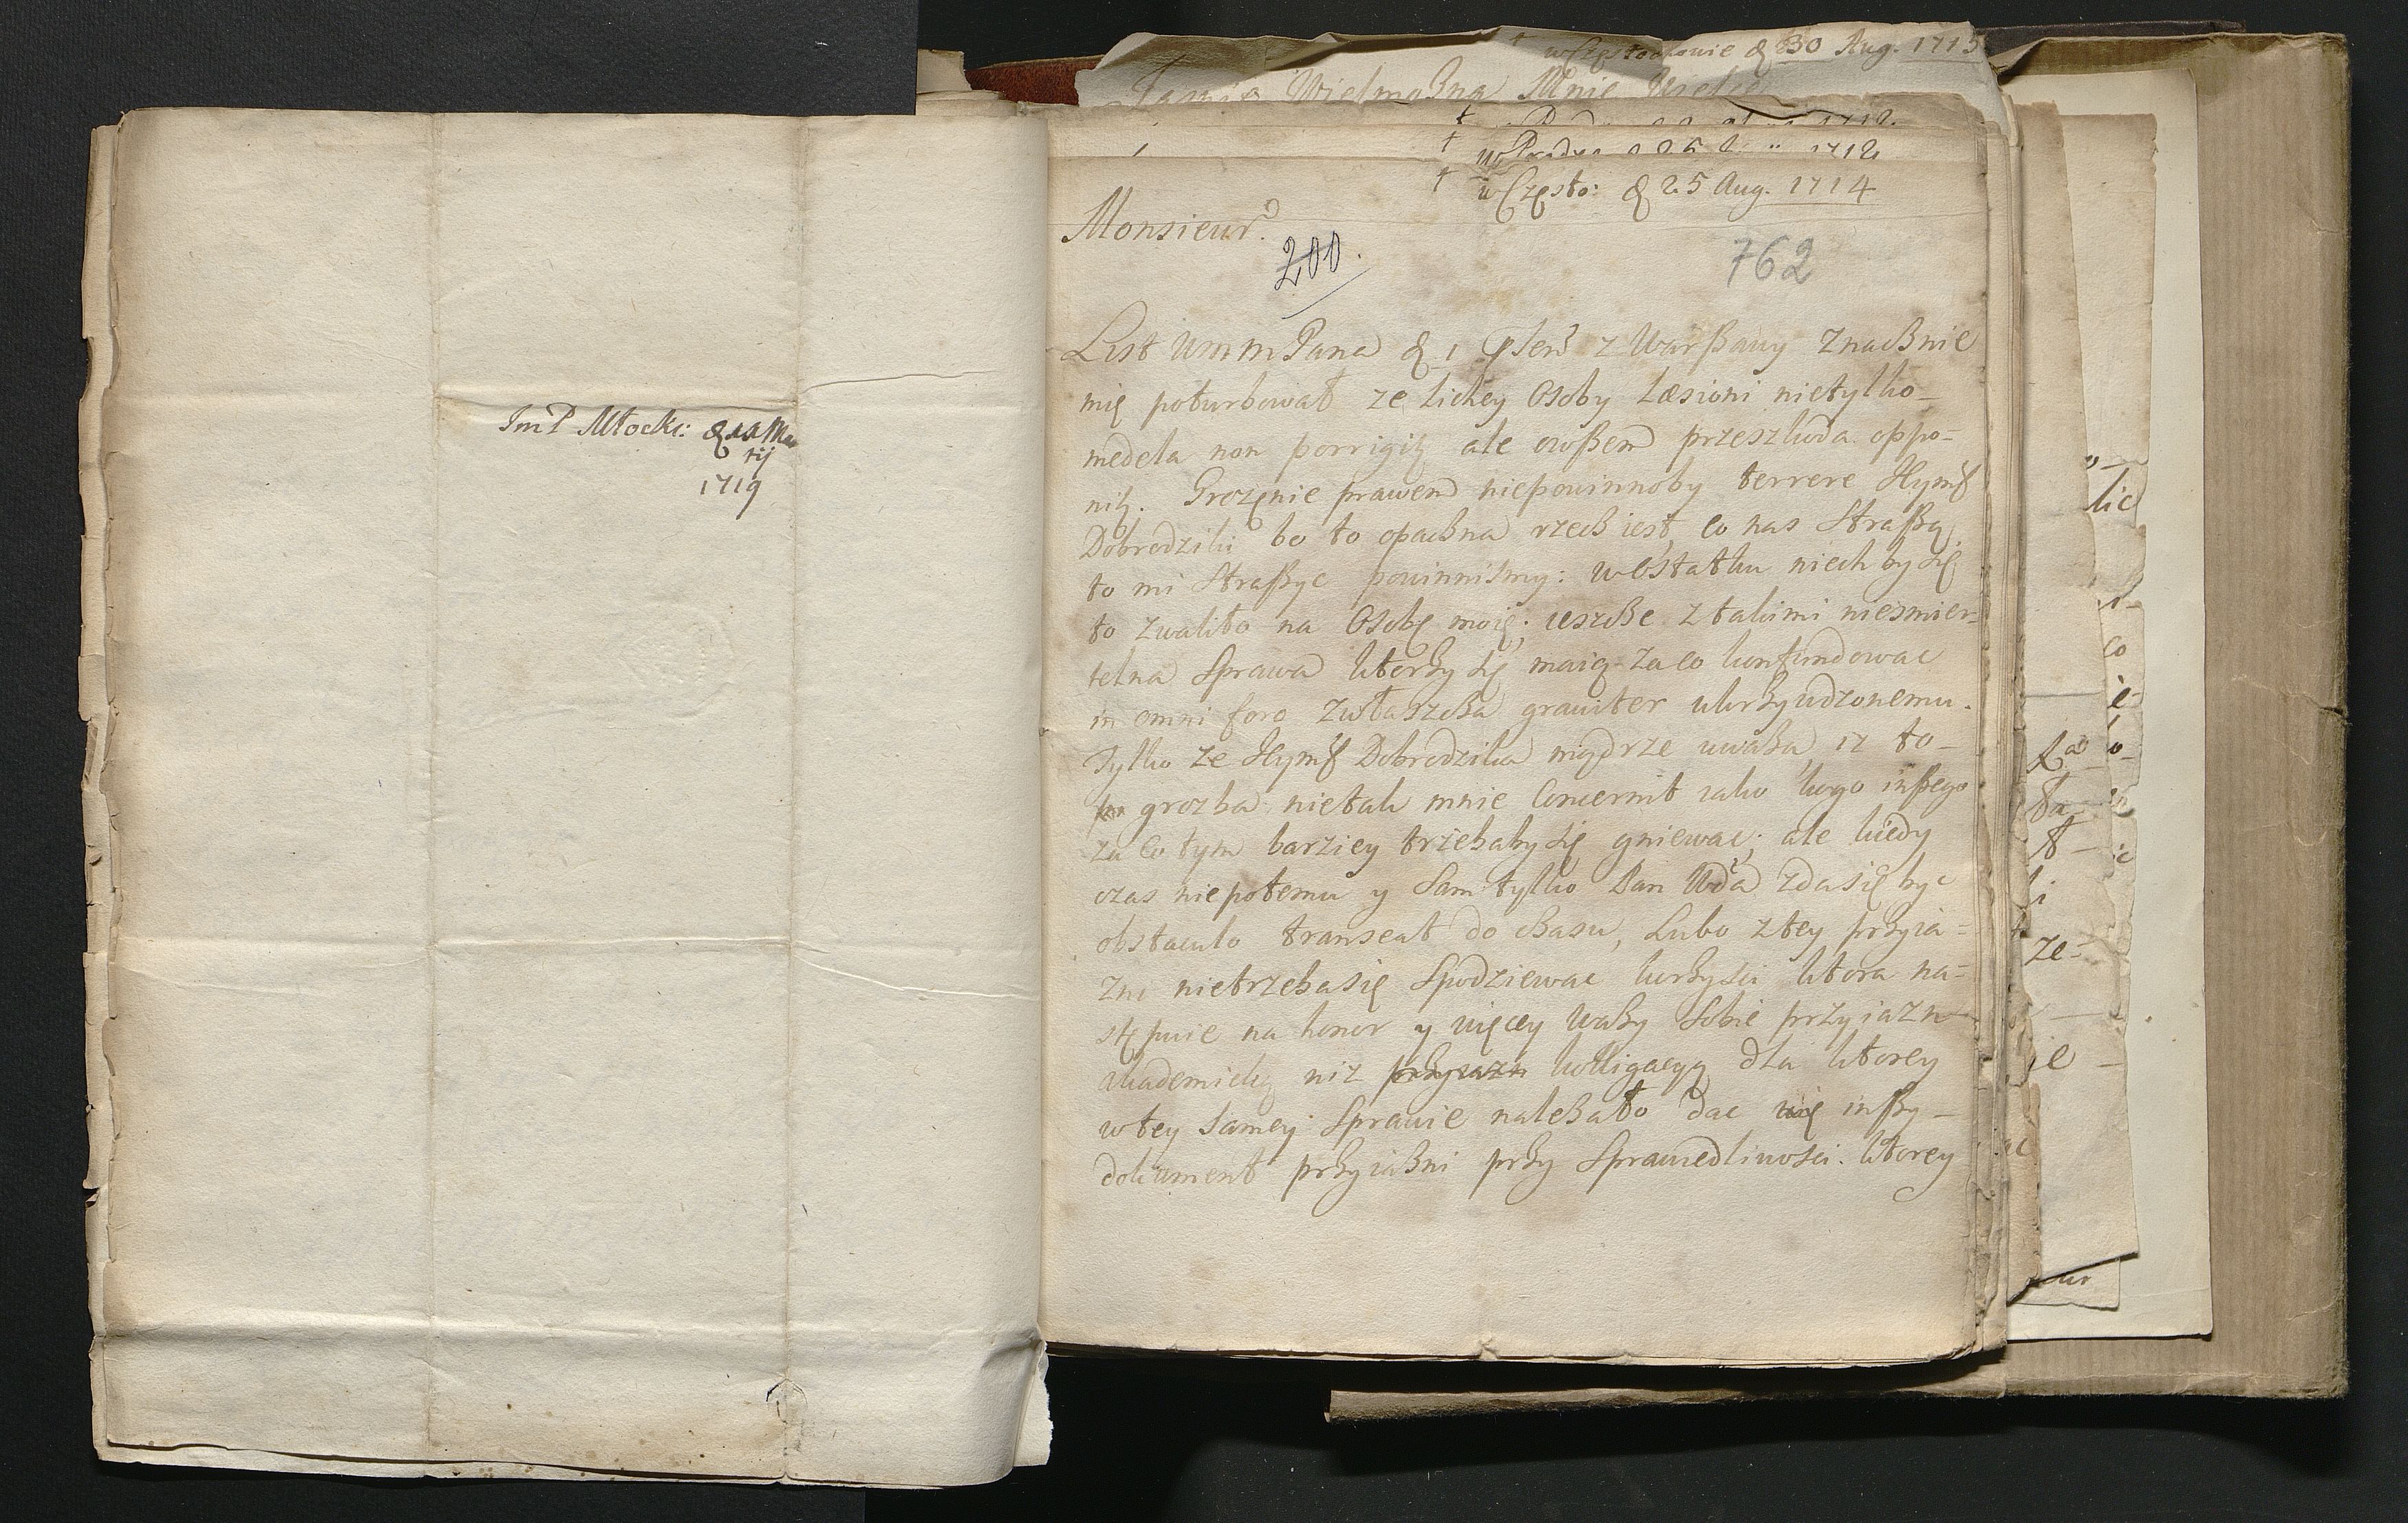 ImP Młocki: d 11 Mar
tij
1719
w Częstochowie d 30 Aug. 1715
Jaśnie Wielmożna Mnie Wielce
1712
1712
† w Często: d 25 Aug. 1714
Monsieur
200.
762
List WmmPana d 1 z Warßawy znacznie
mię poturbował ze lichey Osoby Læsioni nietylko
medela non porrigit ale owßem przeszkoda oppo=
nit. Grożenie prawem niepowinnoby terrere Jeymć
Dobrodziki bo to opaczna rzecz iest, co nas Straßą
to mi Straßyc powinniśmy: wostatku niech by się
to zwaliło na Osobę moię; ieszcze z takimi nieśmier=
telna Sprawa ktorzy się maią za co konfundowac
in omni foro zwłaszcza grauiter ukrzywdzonemu.
Tylko ze Jeymć Dobrodzika mądrze uważa, iz to
grozba nietak mnie Concernit iako kogo inßego
za co tym barziey trzebaby się gniewac; ale kiedy
czas niepotemu y Sam tylko Pan Wda zda się byc
obstaculo transeat do czasu, Lubo z tey przyia=
zni nietrzeba się Spodziewac korzysci ktora na=
stępuie na honor y więcey waży Sobie przyiazn
Akademicką niz przyiazn kolligacyą dla ktorey
w tey Samey Sprawie należało dac inßy
dokument przyiazni przy Sprawiedliwosci. ktorey